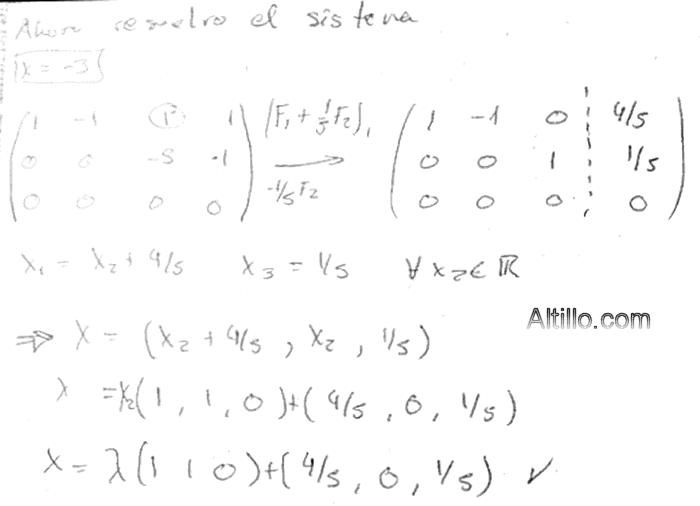 Ahora resuelvo el sistema
α = -3
( 1 -1 1 1 ) (F₁ + 1/5 F₂), ( 1 -1 0 ¦ 4/5 )
( 0 0 -5 -1 ) → ( 0 0 1 ¦ 1/5 )
( 0 0 0 0 ) -1/5 F₂ ( 0 0 0 ¦ 0 )
x₁ = x₂ + 4/5 x₃ = 1/5 ∀ x₂ ∈ ℝ
Altillo.com
⇒ X = (x₂ + 4/5, x₂, 1/5)
X = x₂(1, 1, 0) + (4/5, 0, 1/5)
X = λ(1 1 0) + (4/5, 0, 1/5) ✓